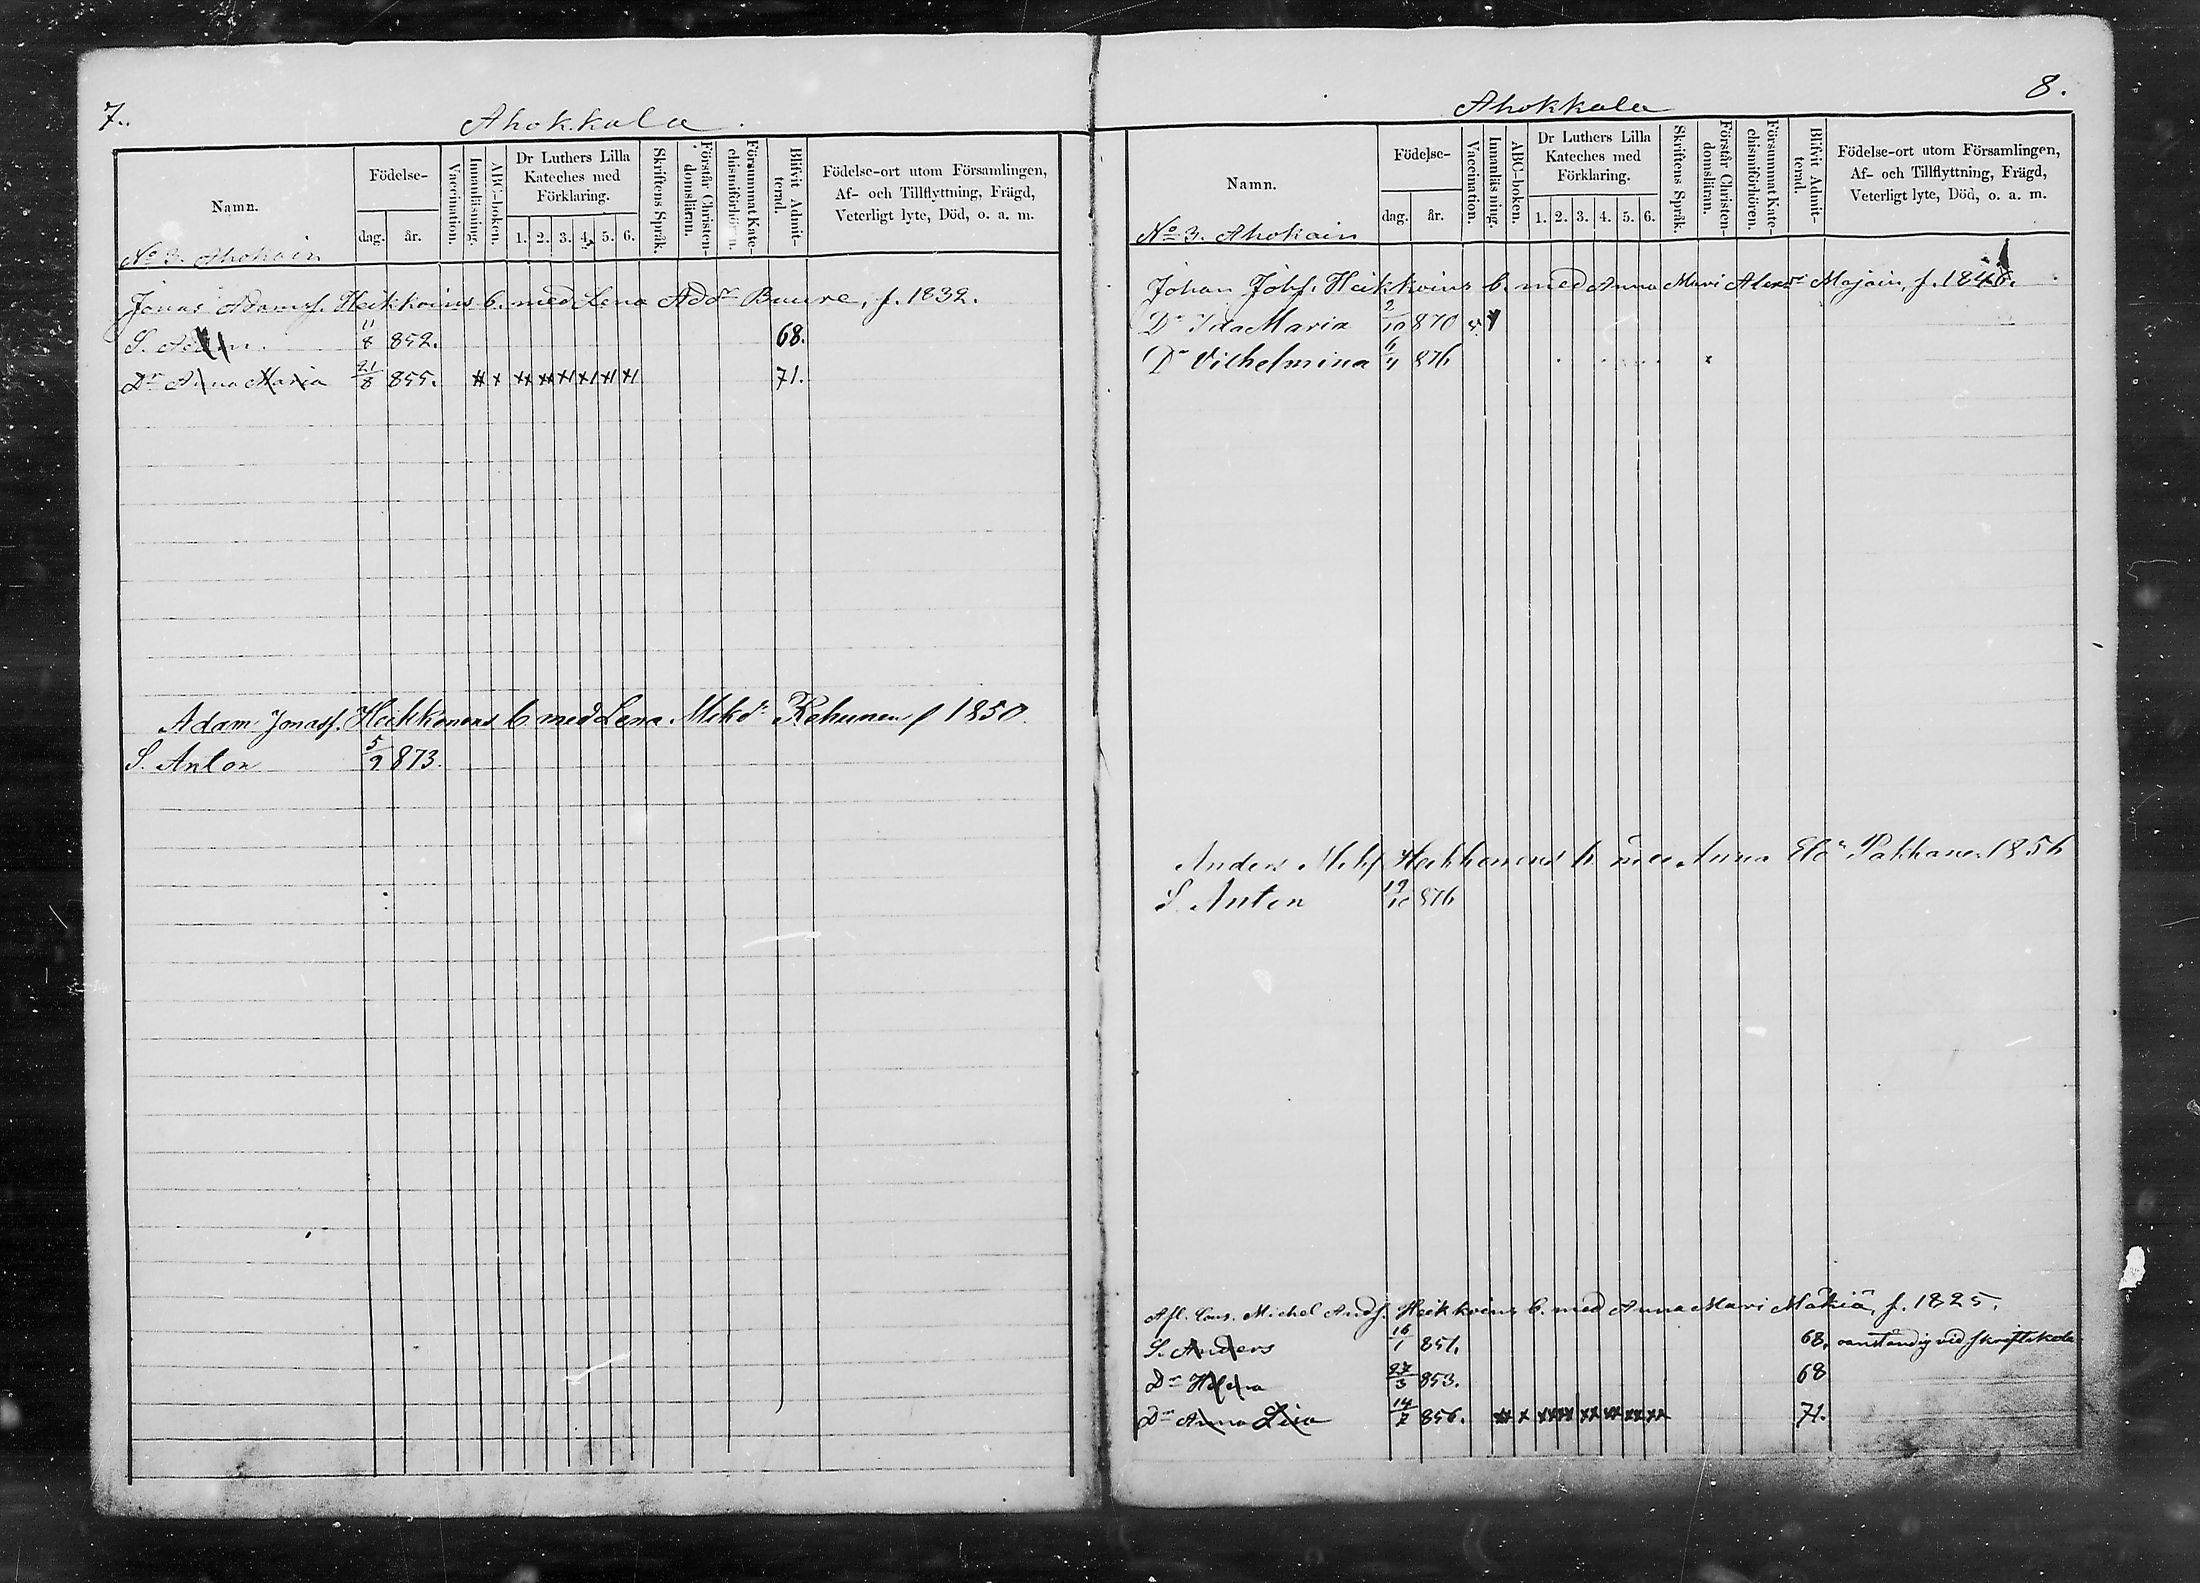 7.
Ahokkala.
Namn.
Födelse-
dag. år.
Vaccination.
Innanläsning.
ABC-boken.
Dr Luthers Lilla Kateches med Förklaring.
1. 2. 3. 4. 5. 6.
Skriftens Språk.
Förstår Christendomsläran.
Försummat Katechismiförhören.
Blifvit Admitterad.
Födelse-ort utom Församlingen,
Af- och Tillflyttning, Frägd,
Veterligt lyte, Död, o. a. m.
No 3. Ahokain
Jonas Adamsf. Heikkoins b. med Lena Add:r Buure, f. 1832.
S. Adam. 11/8 852. 68.
Dr Anna Maria 21/8 855. 71.
Adam Jonasf. Heikkonens b. med Lena Mikd:r f 1850.
S. Anton 5/9 873.
8.
Ahokkala
Namn.
Födelse-
dag. år.
Vaccination.
Innanläsning.
ABC-boken.
Dr Luthers Lilla Kateches med Förklaring.
1. 2. 3. 4. 5. 6.
Skriftens Språk.
Förstår Christendomsläran.
Försummat Katechismiförhören.
Blifvit Admitterad.
Födelse-ort utom Församlingen,
Af- och Tillflyttning, Frägd,
Veterligt lyte, Död, o. a. m.
No 3. Ahokain
Johan Johf. Heikkoins b. med Anna Mari Majoin, f. 1846.
Dr Ida Maria 2/10 870 v.
Dr Vilhelmina 6/4 876
Anders Mikf Heikkonens b. med Anna Pakkanen 1856
S. Anton 19/10 876
Afl. Michel Andf. Heikkoins b. med Anna Mari Mäkiä, f. 1825.
S. Anders 16/1 851. 68. vid skriftskola
Dr Helena 27/3 853. 68
Dr Anna Lisa 14/7 856. 71.